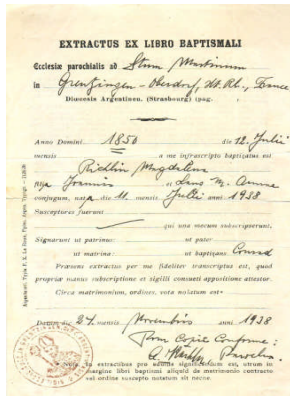 EXTRACTUS EX LIBRO BAPTISMALI
Ecclesiæ parochialis ad Stum Martinum
in Grentzingen - Oberdorf, Ht. Rh., France
Dioecesis Argentinen. (Strasbourg)
Anno Domini 1850 die 12 Julii
mensis a me infrascripto baptizatus est
Richlin Magdalena
filia Joannis et M. Anna
conjugum, nata die 11 mensis Julii anni 1938
Susceptores fuerunt
qui una mecum subscripserunt.
Signarunt ut patrinus: ut pater
ut matrina: ut baptizans Conrad
Præsens extractus per me fideliter transcriptus est, quod
propriæ manus subscriptione et sigilli consueti appositione attestor.
Circa matrimonium, ordines, vota notatum est:
Datum die 24 Novembris anni 1938
Pro Copie Conforme:
Nota. In extractibus pro nuptiis significandum est, utrum in
margine libri baptismi aliquid de matrimonio contracto
vel ordine suscepto notatum sit necne.